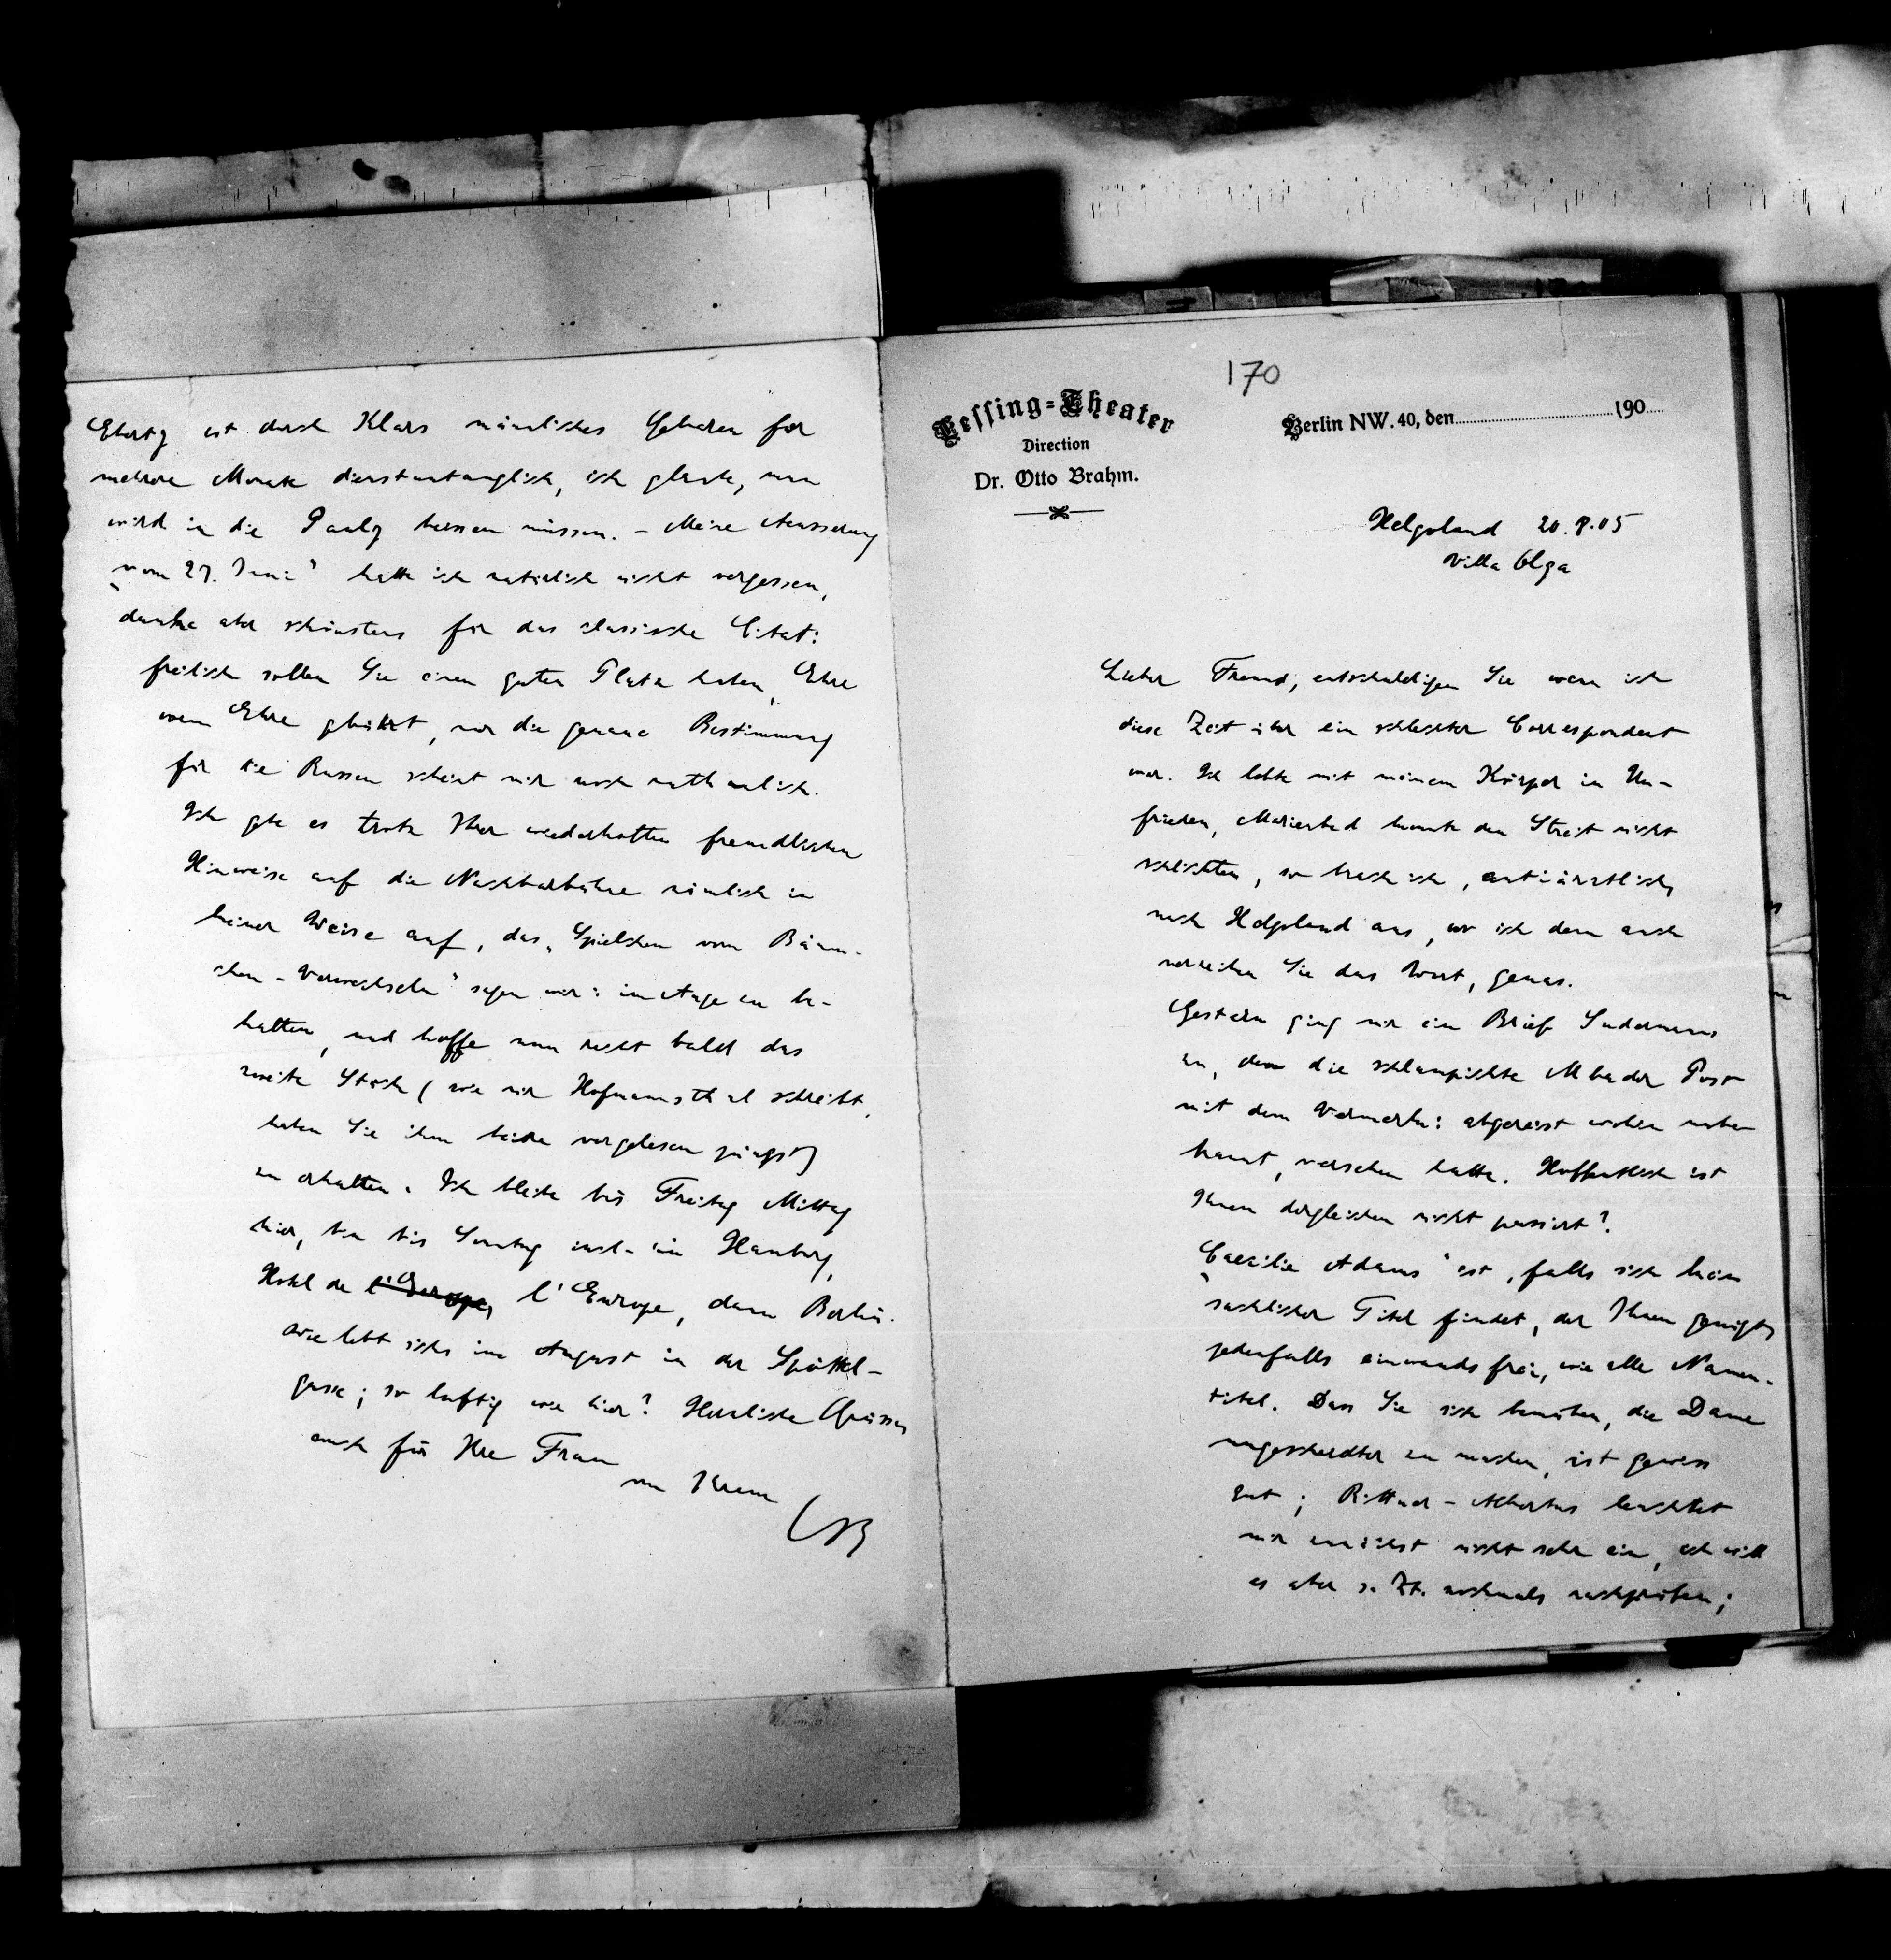 170
Lessing-Theater
Direction
Dr. Otto Brahm.
Berlin NW. 40, den 190
Helgoland 20.8.05
Villa Olga
Lieber Freund, entschuldigen Sie wenn ich
diese Zeit über ein schlechter Correspondent
war. Ich lebte mit meinem Körper in Un-
frieden, Marienbad konnte den Streit nicht
schlichten, so brach ich, antiärztlich,
nach Helgoland aus, wo ich denn auch
verzeihen Sie das Wort, genas.
Gestern ging mir ein Brief Sudermanns
zu, den die schlampichte Mbader Post
mit dem Vermerke: abgereist wohin unbe
kannt, versehen hatte. Hoffentlich ist
Ihnen dergleichen nicht passiert?
„Caecilie Adams" ist, falls sich kein
sachlicher Titel findet, der Ihnen genügt,
jedenfalls einwandsfrei, wie alle Namen-
titel. Dass Sie sich bemühen, die Dame
ungescheidter zu machen, ist gewiss
gut; Rittner-Albertus leuchtet
mir zunächst nicht sehr ein, ich will
es aber s. Zt. nochmals nachprüfen;
ist durch Klars männliches Gebaren for
mehrere Monate dienstuntauglich, ich glaube, man
wird in die Pauly beissen müssen. – Meine Aeusserung
„vom 27. Juni" hatte ich natürlich nicht vergessen,
danke aber schönstens für das classische Citat:
freilich sollen Sie einen guten Platz haben, Ehre
wem Ehre gebührt, nur die genaue Bestimmung
für die Russen scheint mir noch unthunlich.
Ich gebe es trotz Ihrer wiederholten freundlichen
Hinweise auf die Nachbarbühne nämlich in
keiner Weise auf, das „Spielchen vom Bäum-
chen-Verwechseln" sagen wir: im Auge zu be-
halten, und hoffe nun recht bald das
zweite Stück (wie mir Hofmannsthal schreibt,
haben Sie ihm beide vorgelesen jüngst)
zu erhalten. Ich bleibe bis Freitag Mittag
hier, bin bis Sonntag incl. in Hamburg,
Hotel de l'Europe, l'Europe, dann Berlin.
Wie lebt sichs im August in der Spöttel-
gasse; so luftig wie hier? Herzliche Grüsse,
auch für Ihre Frau
von Ihrem
OB